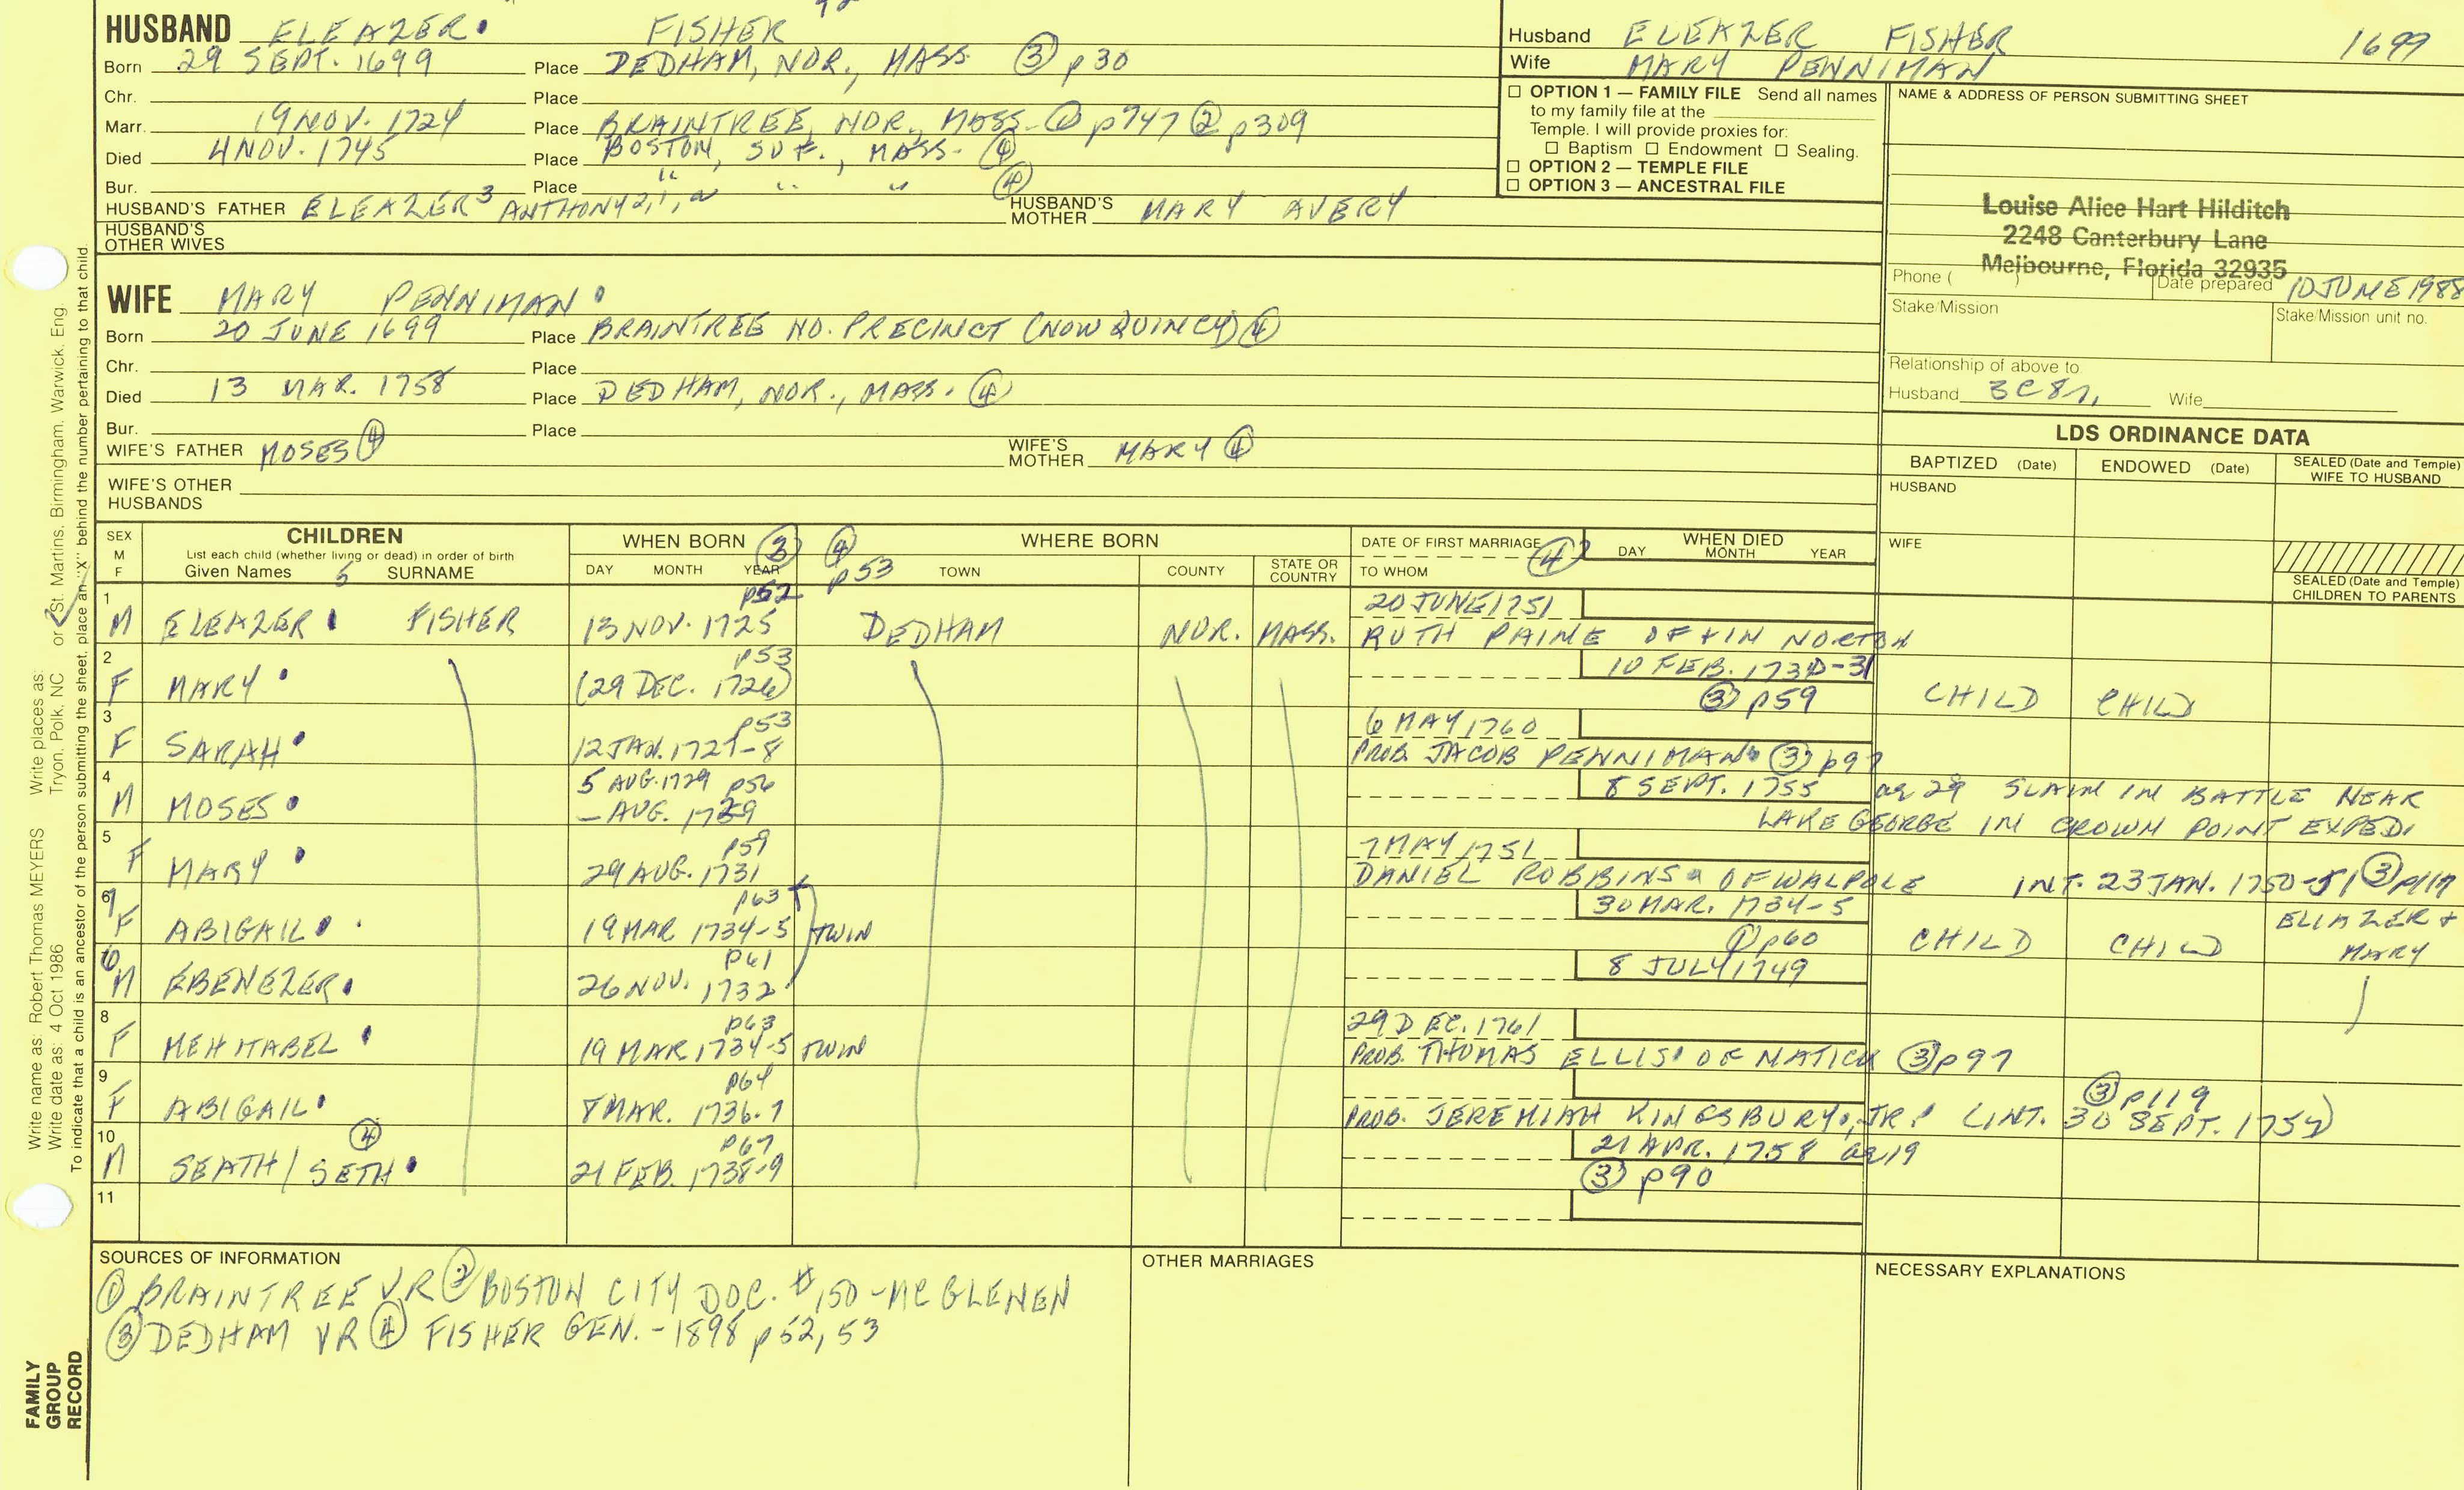 HUSBAND ELEAZER FISHER
Born 29 SEPT. 1699 Place DEDHAM, NOR., MASS. ③ p30
Chr. Place
Marr. 19 NOV. 1724 Place BRAINTREE, NOR., MASS. ① p747 ② p309
Died 4 NOV. 1745 Place BOSTON, SUF., MASS. ④
Bur. Place " " " ④
HUSBAND'S FATHER ELEAZER³ ANTHONY 2,1, HUSBAND'S MOTHER MARY AVERY
HUSBAND'S OTHER WIVES
Husband ELEAZER FISHER 1699
Wife MARY PENNIMAN
☐ OPTION 1 — FAMILY FILE Send all names
to my family file at the
Temple. I will provide proxies for:
☐ Baptism ☐ Endowment ☐ Sealing.
☐ OPTION 2 — TEMPLE FILE
☐ OPTION 3 — ANCESTRAL FILE
NAME & ADDRESS OF PERSON SUBMITTING SHEET
Louise Alice Hart Hilditch
2248 Canterbury Lane
Melbourne, Florida 32935
Phone ( ) Date prepared 10 JUNE 1988
Stake/Mission Stake/Mission unit no.
Relationship of above to
Husband 3C8R, Wife
WIFE MARY PENNIMAN
Born 20 JUNE 1699 Place BRAINTREE NO. PRECINCT (NOW QUINCY) ④
Chr. Place
Died 13 MAR. 1758 Place DEDHAM, NOR., MASS. ④
Bur. Place
WIFE'S FATHER MOSES ④ WIFE'S MOTHER MARY ④
WIFE'S OTHER HUSBANDS
LDS ORDINANCE DATA
BAPTIZED (Date) ENDOWED (Date) SEALED (Date and Temple) WIFE TO HUSBAND
HUSBAND
WIFE
SEALED (Date and Temple) CHILDREN TO PARENTS
SEX M F CHILDREN
List each child (whether living or dead) in order of birth
Given Names 5 SURNAME
WHEN BORN ③ DAY MONTH YEAR
④ p53 WHERE BORN TOWN COUNTY STATE OR COUNTRY
DATE OF FIRST MARRIAGE ④ TO WHOM
WHEN DIED DAY MONTH YEAR
1 p52 20 JUNE 1751
M ELEAZER FISHER 13 NOV. 1725 DEDHAM NOR. MASS. RUTH PAINE OF + IN NORTON
2 p53 10 FEB. 1730-31
F MARY (29 DEC. 1726) ③ p59 CHILD CHILD
3 p53 6 MAY 1760
F SARAH 12 JAN. 1727-8 PROB. JACOB PENNIMAN ③ p97
4 5 AUG. 1729 p56 8 SEPT. 1755 ae 29 SLAIN IN BATTLE NEAR
M MOSES — AUG. 1729 LAKE GEORGE IN CROWN POINT EXPED.
5 p59 7 MAY 1751
F MARY 29 AUG. 1731 DANIEL ROBBINS OF WALPOLE INT. 23 JAN. 1750-51 ③ p117
7 p63 30 MAR. 1734-5 ELIAZER +
F ABIGAIL 19 MAR 1734-5 TWIN ① p60 CHILD CHILD MARY
6 p61 8 JULY 1749
M EBENEZER 26 NOV. 1732
8 p63 29 DEC. 1761
F MEHITABEL 19 MAR 1734-5 TWIN PROB. THOMAS ELLIS OF NATICK ③ p97
9 p64 ③ p119
F ABIGAIL 8 MAR. 1736-7 PROB. JEREMIAH KINGSBURY, JR. (INT. 30 SEPT. 1754)
10 ④ p67 21 APR. 1758 ae 19
M SEATH / SETH 21 FEB. 1738-9 ③ p90
11
SOURCES OF INFORMATION
① BRAINTREE VR ② BOSTON CITY DOC. #150 - MCGLENEN
③ DEDHAM VR ④ FISHER GEN. - 1898 p52, 53
OTHER MARRIAGES
NECESSARY EXPLANATIONS
Write name as: Robert Thomas MEYERS Write places as: Tryon, Polk, NC or St. Martins, Birmingham, Warwick, Eng.
Write date as: 4 Oct 1986
To indicate that a child is an ancestor of the person submitting the sheet, place an "X" behind the number pertaining to that child.
FAMILY
GROUP
RECORD